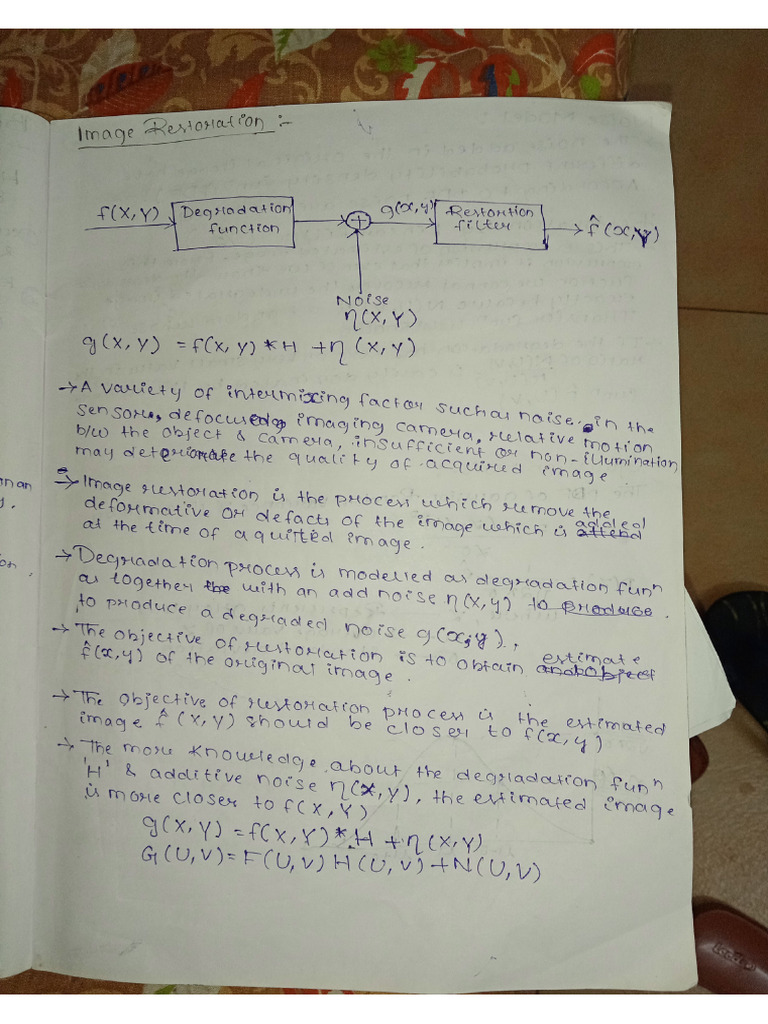 Image Restoration :-
f(x,y) Degradation function + g(x,y) Restortion filter f̂(x,y)
Noise
η(x,y)
g(x,y) = f(x,y) * H + η(x,y)
→ A variety of intermixing factor such as noise in the
sensors, defocused imaging camera, relative motion
b/w the object & camera, insufficient or non-illumination
may deteriorate the quality of acquired image
→ Image restoration is the process which remove the
deformative or defacts of the image which is added
at the time of aquitted image.
→ Degradation process is modelled as degradation funⁿ
as together with an add noise η(x,y)
to produce a degraded noise g(x,y),
→ The objective of restoration is to obtain estimate
f̂(x,y) of the original image.
→ The objective of restoration process is the estimated
image f̂(x,y) should be closer to f(x,y)
→ The more knowledge about the degradation funⁿ
'H' & additive noise η(x,y), the estimated image
is more closer to f(x,y)
g(x,y) = f(x,y) * H + η(x,y)
G(U,V) = F(U,V) H(U,V) + N(U,V)